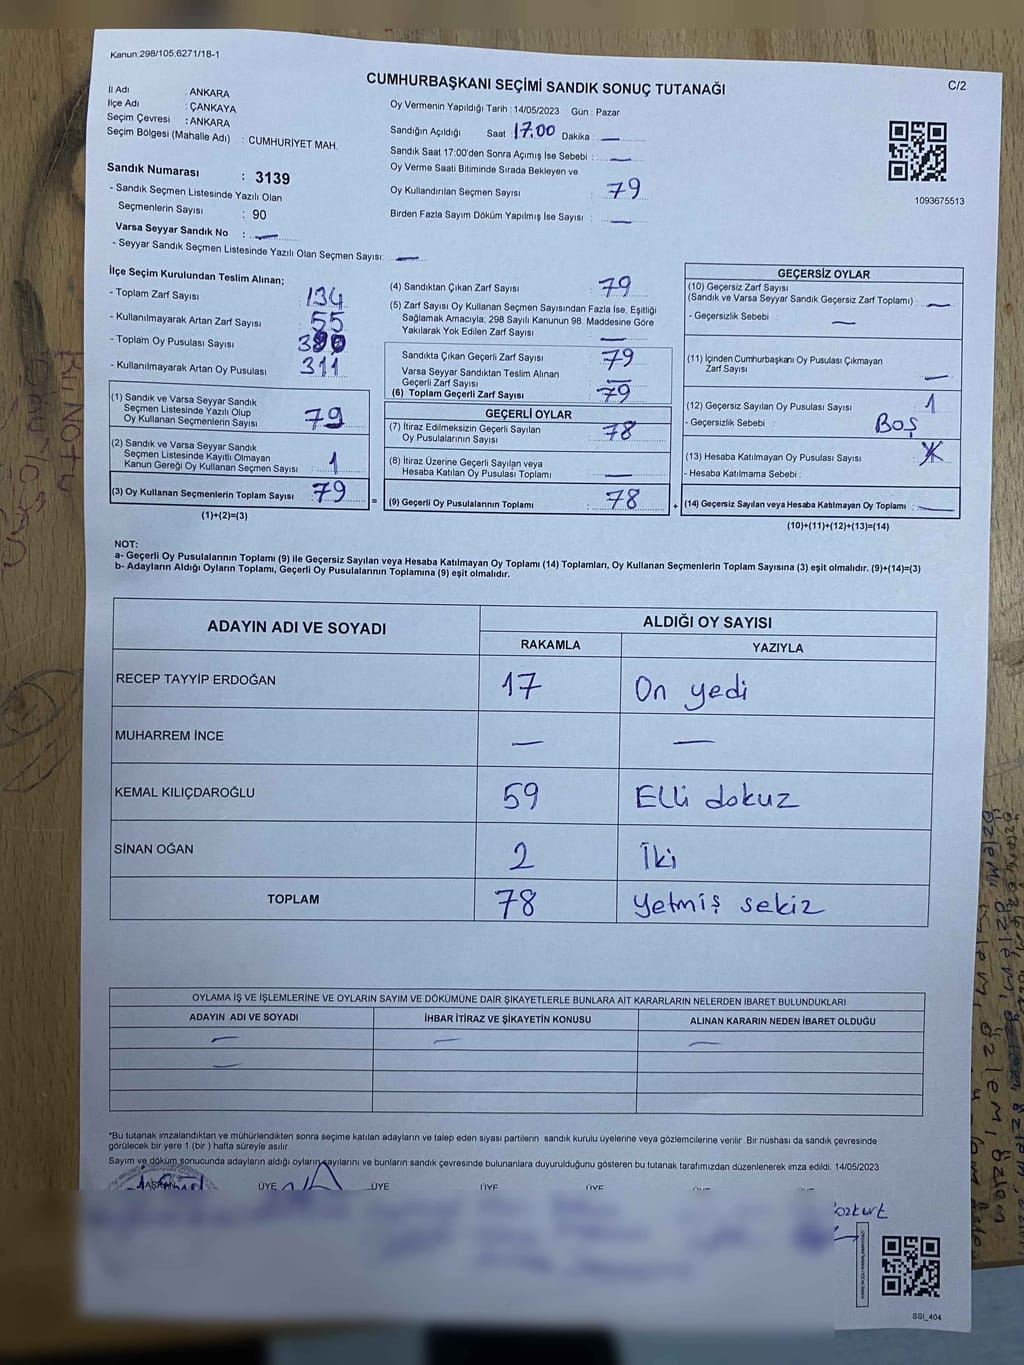 Kanun:298/105,6271/18-1
CUMHURBAŞKANI SEÇİMİ SANDIK SONUÇ TUTANAĞI
C/2
İl Adı : ANKARA
İlçe Adı : ÇANKAYA
Seçim Çevresi : ANKARA
Seçim Bölgesi (Mahalle Adı) : CUMHURİYET MAH.
Sandık Numarası : 3139
- Sandık Seçmen Listesinde Yazılı Olan
Seçmenlerin Sayısı : 90
Varsa Seyyar Sandık No : —
- Seyyar Sandık Seçmen Listesinde Yazılı Olan Seçmen Sayısı: —
Oy Vermenin Yapıldığı Tarih : 14/05/2023 Gün : Pazar
Sandığın Açıldığı Saat 17.00 Dakika : —
Sandık Saat 17:00'den Sonra Açımış İse Sebebi : —
Oy Verme Saati Bitiminde Sırada Bekleyen ve
Oy Kullandırılan Seçmen Sayısı : 79
Birden Fazla Sayım Döküm Yapılmış İse Sayısı : —
1093675513
İlçe Seçim Kurulundan Teslim Alınan;
- Toplam Zarf Sayısı 134
- Kullanılmayarak Artan Zarf Sayısı 55
- Toplam Oy Pusulası Sayısı
- Kullanılmayarak Artan Oy Pusulası 311
(1) Sandık ve Varsa Seyyar Sandık
Seçmen Listesinde Yazılı Olup
Oy Kullanan Seçmenlerin Sayısı 79
(2) Sandık ve Varsa Seyyar Sandık
Seçmen Listesinde Kayıtlı Olmayan
Kanun Gereği Oy Kullanan Seçmen Sayısı 1
(3) Oy Kullanan Seçmenlerin Toplam Sayısı 79 =
(1)+(2)=(3)
(4) Sandıktan Çıkan Zarf Sayısı 79
(5) Zarf Sayısı Oy Kullanan Seçmen Sayısından Fazla İse, Eşitliği
Sağlamak Amacıyla; 298 Sayılı Kanunun 98. Maddesine Göre
Yakılarak Yok Edilen Zarf Sayısı —
Sandıkta Çıkan Geçerli Zarf Sayısı 79
Varsa Seyyar Sandıktan Teslim Alınan
Geçerli Zarf Sayısı —
(6) Toplam Geçerli Zarf Sayısı 79
GEÇERLİ OYLAR
(7) İtiraz Edilmeksizin Geçerli Sayılan
Oy Pusulalarının Sayısı 78
(8) İtiraz Üzerine Geçerli Sayılan veya
Hesaba Katılan Oy Pusulası Toplamı —
(9) Geçerli Oy Pusulalarının Toplamı : 78 +
GEÇERSİZ OYLAR
(10) Geçersiz Zarf Sayısı
(Sandık ve Varsa Seyyar Sandık Geçersiz Zarf Toplamı) : —
- Geçersizlik Sebebi : —
(11) İçinden Cumhurbaşkanı Oy Pusulası Çıkmayan
Zarf Sayısı —
(12) Geçersiz Sayılan Oy Pusulası Sayısı 1
- Geçersizlik Sebebi : BOŞ
(13) Hesaba Katılmayan Oy Pusulası Sayısı
- Hesaba Katılmama Sebebi :
(14) Geçersiz Sayılan veya Hesaba Katılmayan Oy Toplamı : —
(10)+(11)+(12)+(13)=(14)
NOT:
a- Geçerli Oy Pusulalarının Toplamı (9) ile Geçersiz Sayılan veya Hesaba Katılmayan Oy Toplamı (14) Toplamları, Oy Kullanan Seçmenlerin Toplam Sayısına (3) eşit olmalıdır. (9)+(14)=(3)
b- Adayların Aldığı Oyların Toplamı, Geçerli Oy Pusulalarının Toplamına (9) eşit olmalıdır.
ADAYIN ADI VE SOYADI ALDIĞI OY SAYISI
RAKAMLA YAZIYLA
RECEP TAYYİP ERDOĞAN 17 On yedi
MUHARREM İNCE — —
KEMAL KILIÇDAROĞLU 59 Elli dokuz
SİNAN OĞAN 2 İki
TOPLAM 78 Yetmiş sekiz
OYLAMA İŞ VE İŞLEMLERİNE VE OYLARIN SAYIM VE DÖKÜMÜNE DAİR ŞİKAYETLERLE BUNLARA AİT KARARLARIN NELERDEN İBARET BULUNDUKLARI
ADAYIN ADI VE SOYADI İHBAR İTİRAZ VE ŞİKAYETİN KONUSU ALINAN KARARIN NEDEN İBARET OLDUĞU
— — —
—
*Bu tutanak imzalandıktan ve mühürlendikten sonra seçime katılan adayların ve talep eden siyasi partilerin sandık kurulu üyelerine veya gözlemcilerine verilir. Bir nüshası da sandık çevresinde
görülecek bir yere 1 (bir) hafta süreyle asılır.
Sayım ve döküm sonucunda adayların aldığı oyların sayılarını ve bunların sandık çevresinde bulunanlara duyurulduğunu gösteren bu tutanak tarafımızdan düzenlenerek imza edildi. 14/05/2023
BAŞKAN ÜYE ÜYE ÜYE ÜYE
SSI_404